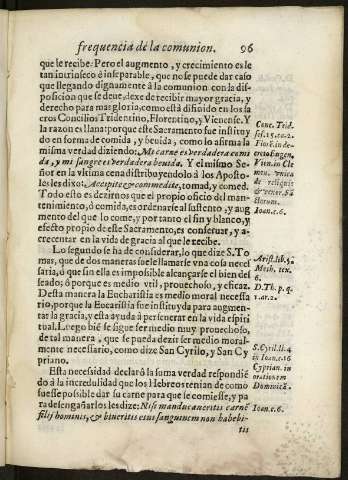 frequencia de la comunion. 96
que le recibe. Pero el augmento, y crecimiento es le
tan intrinseco è inseparable, que no se puede dar caso
que llegando dignamente à la comunion con la dis-
posicion que se deue, dexe de recibir mayor gracia, y
derecho para mas gloria, como està difinido en los sa
cros Concilios Tridentino, Florentino, y Vienense. Y
la razon es llana: porque este Sacramento fue instituy
do en forma de comida, y beuida, como lo afirma la
misma verdad diziendo: Me carne es verdadera comi
da, y mi sangre es verdadera beuida. Y el mismo Se-
ñor en la vltima cena distribuyendolo à los Aposto-
les les dixo: Accipite & commedite, tomad, y comed.
Todo esto es dezirnos que el propio oficio del man-
tenimiento, ò comida, es ordenarse al sustento, y au-
mento del que lo come, y por tanto el fin y blanco, y
efecto propio de este Sacramento, es conseruar, y a-
crecentar en la vida de gracia al que le recibe.
Conc. Trid.
sess. 13. ca. 2.
Flor. in de-
creto Eugen.
Vien. in Cle
men. vnica
de reliquiis
& vener. Sã
ctorum.
Ioan. c. 6.
Lo segundo se ha de considerar, lo que dize S. To
mas, que de dos maneras suele llamarse vna cosa neces
saria, ò que sin ella es impossible alcançarse el bien des
seado; ò porque es medio vtil, prouechoso, y eficaz.
Desta manera la Eucharistia es medio moral necessa
rio, porque la Eucaristia fue instituyda para augmen-
tar la gracia, y esta ayuda à perseuerar en la vida espiri
tual. Luego biẽ se sigue ser medio muy prouechoso,
de tal manera, que se pueda dezir ser medio moral-
mente necessario, como dize San Cyrilo, y San Cy
priano.
Arist. lib. 5.
Meth. tex.
6.
D. Th. p. q.
1. ar. 2.
S. Cyril. li. 4
in Ioan. c. 16
Cyprian. in
orationem
Dominicã.
Esta necessidad declarò la suma verdad respondiẽ
do à la incredulidad que los Hebreos tenian de como
fuesse possible dar su carne para que se comiesse, y pa
ra desengañarlos les dize: Nisi manducaueritis carnẽ
filij hominis, & biueritis eius sanguinem non habebi-
Ioan. c. 6.
tis